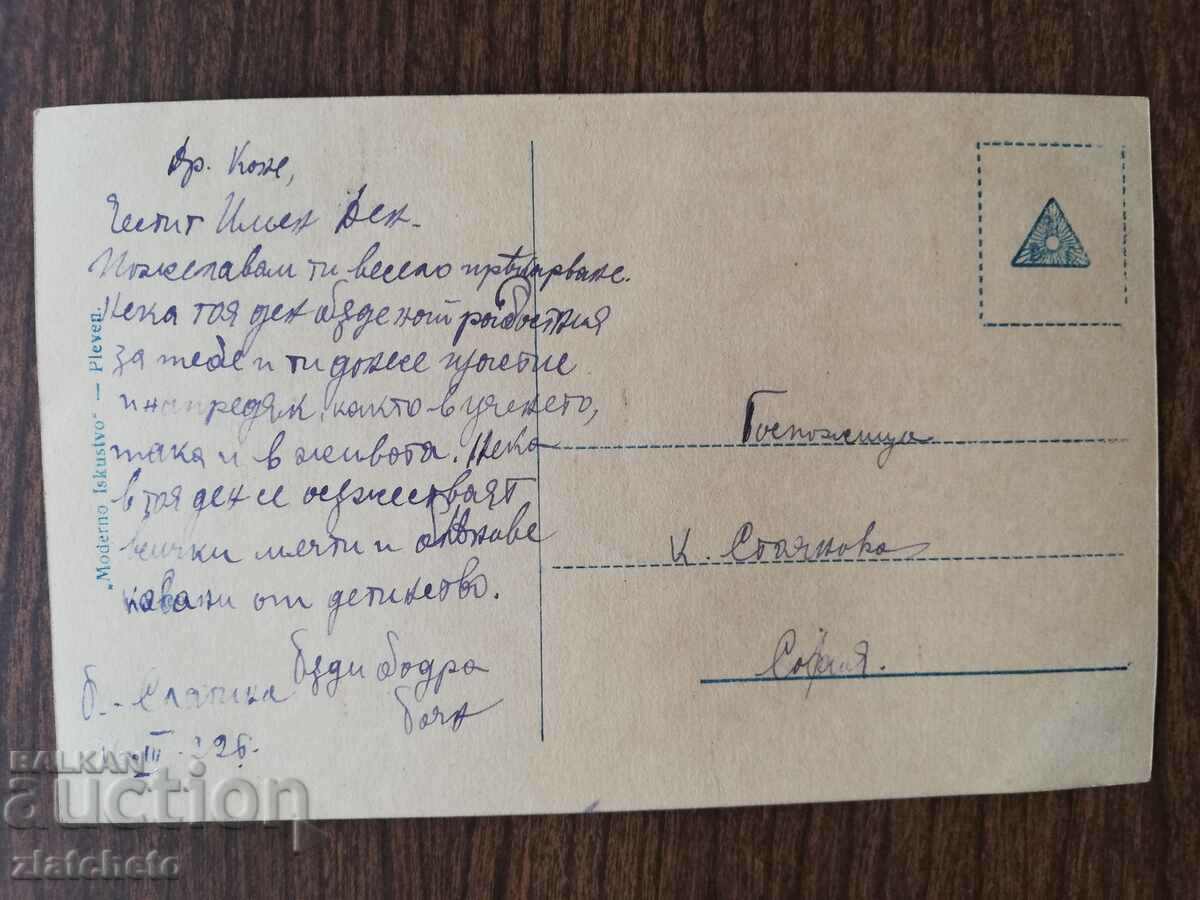 Др. Коже,
Честит Имен Ден.
Пожелавам ти весело прѣкарване.
Нека тоя ден бѫде
за тебе и ти донесе щастие
и напредък, както в учението,
така и в живота. Нека
в тоя ден се осъществяят
всички мечти и блянове
от детинство.
бѫди бодра
Боян
б.-Слатина
III 926.
"Moderno Iskustvo" — Pleven.
Госпожица
К. Стоянова
София.
BALKAN
auction
zlatcheto